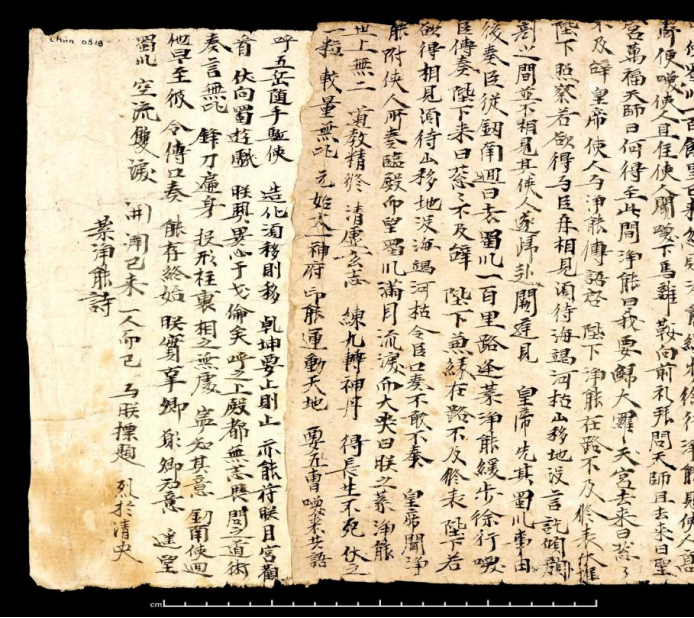 前便喚使人且住使人聞喚下馬離鞍向前礼拜問天師且去來曰聖
宮萬福天師曰何得至此間淨能曰我要歸大羅天宮去來曰怱々
不及辭皇帝使人与淨能傳語啓 陛下淨能在路不及修表
陛下照察若欲得与臣再相見須待海竭河枯山移地沒言訖傾
刻之間並不相見其使人遂歸赴闕見 皇帝先具蜀川事由
後奏臣從劒南迴日去蜀川一百里路逢葉淨能緩步徐行喚
臣傳奏陛下来日怱々不及辭 陛下兼緣在路不及修表陛下若
欲得相見須待山移地沒海竭河枯令臣口奏不敢不奏 皇帝聞淨
能附使人所奏臨殿而望蜀川滿目流淚而大哭曰朕之葉淨能
世上無二 道教精修 清虛玄志 練九轉神丹 得長生不死伏之
一粒 較量無比 元始太一神府 即能運動天地 要五曹喚来共語
呼五岳随手駈使 造化須移則移 乾坤要止則止 亦能符朕月宮觀
看 伏向蜀遊戲 朕興異心于戈倫矣 呼之上殿都無忌 問之道術
奏言無比 鋒刀遍身 投形柱裏 相之無處 豈知其意 劒南使迴
他早至彼 令傳口奏 能存終始 朕實辜卿 卿忍意 遠望
蜀川 空流雙淚 開闢已来一人而已 与朕標題 烈於清史
葉淨能詩
cm